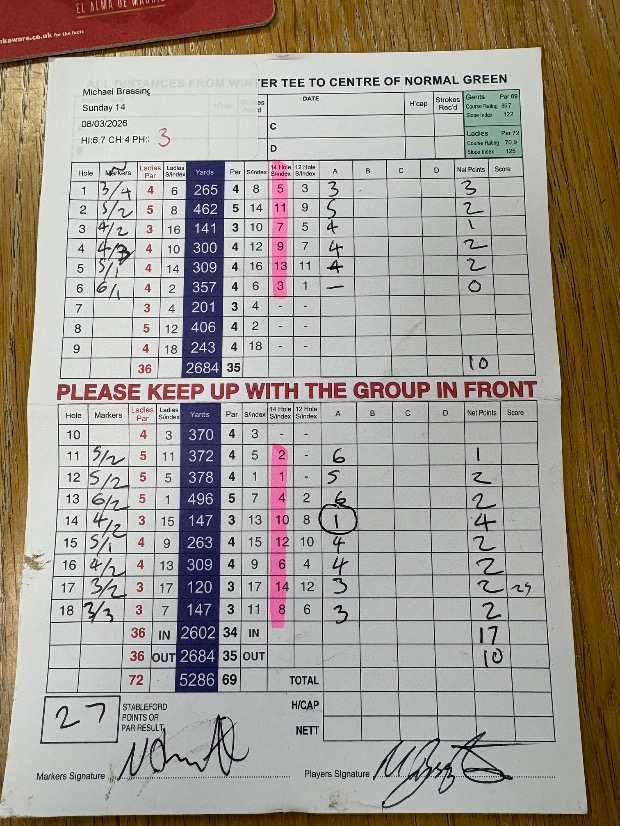 EL ALMA DE MADRID
nkaware.co.uk for the facts
ALL DISTANCES FROM WINTER TEE TO CENTRE OF NORMAL GREEN
Michael Brassing
Sunday 14
08/03/2026
HI:6.7 CH:4 PH: 3
DATE H'cap Strokes Rec'd
C
D
Gents Par 69
Course Rating 65.7
Slope Index 122
Ladies Par 72
Course Rating 70.9
Slope Index 125
Hole Markers Ladies Par Ladies S/Index Yards Par S/Index 14 Hole S/Index 12 Hole S/Index A B C D Net Points Score
1 3/4 4 6 265 4 8 5 3 3 3
2 5/2 5 8 462 5 14 11 9 5 2
3 4/2 3 16 141 3 10 7 5 4 1
4 4/3 4 10 300 4 12 9 7 4 2
5 5/1 4 14 309 4 16 13 11 4 2
6 6/1 4 2 357 4 6 3 1 — 0
7 3 4 201 3 4 - -
8 5 12 406 4 2 - -
9 4 18 243 4 18 - -
36 2684 35 10
PLEASE KEEP UP WITH THE GROUP IN FRONT
Hole Markers Ladies Par Ladies S/Index Yards Par S/Index 14 Hole S/Index 12 Hole S/Index A B C D Net Points Score
10 4 3 370 4 3 - -
11 5/2 5 11 372 4 5 2 - 6 1
12 5/2 5 5 378 4 1 1 - 5 2
13 6/2 5 1 496 5 7 4 2 6 2
14 4/2 3 15 147 3 13 10 8 1 4
15 5/1 4 9 263 4 15 12 10 4 2
16 4/2 4 13 309 4 9 6 4 4 2
17 3/2 3 17 120 3 17 14 12 3 2 25
18 3/3 3 7 147 3 11 8 6 3 2
36 IN 2602 34 IN 17
36 OUT 2684 35 OUT 10
72 5286 69 TOTAL
27 STABLEFORD POINTS OR PAR RESULT
H/CAP
NETT
Markers Signature
Players Signature